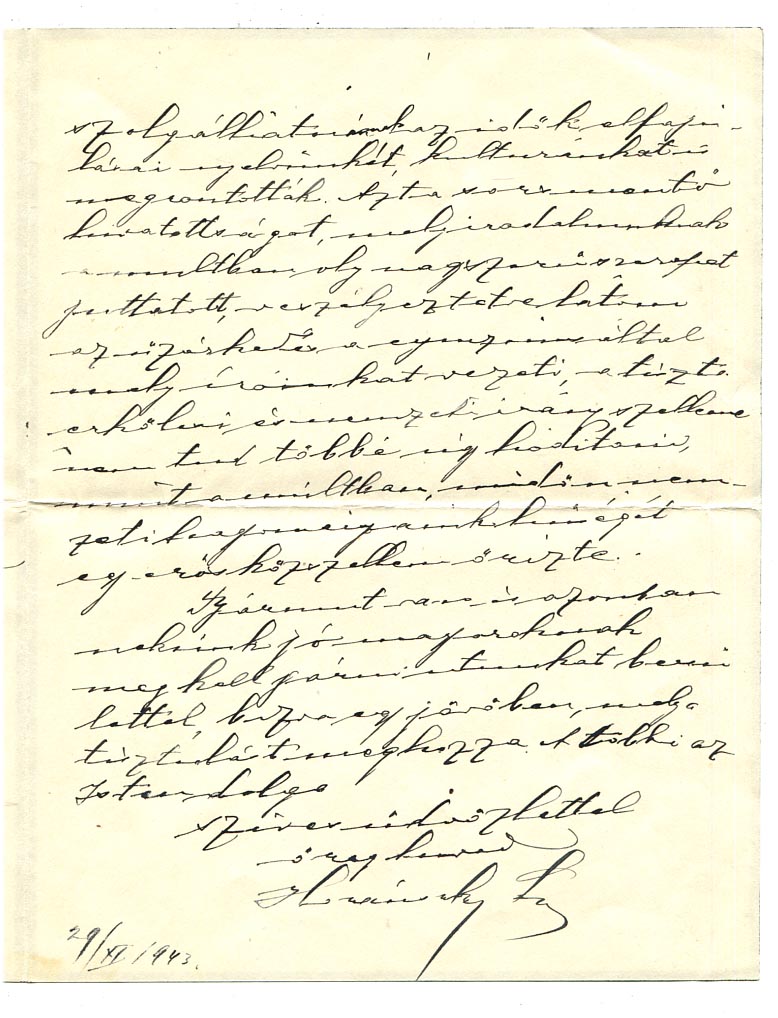 szolgálhatnánk az idők elfaju-
lásai nyelvünket, kulturánkat is
megrontották. Azt a sorsmentő
hivatottságot, mely irodalmunknak
a multban oly nagyszerű szerepet
juttatott, veszélyeztetve látom
az üzérkedés a cynizmus által
mely íróinkat vezeti, a tiszta
erkölcsi és nemzeti irány szelleme
nem tud többé úgy hódítani,
mint a multban, midőn nem-
zeti hagyományaink hűségét
egy erős közszellem őrizte.
Így van is azonban
nekünk jó magyaroknak
meg kell járni utunkat becsü
lettel, bízva egy jövőben, mely a
tisztulást meghozza. A többi az
Isten dolga
szíves üdvözlettel
öreg híved
29/XI 1943.